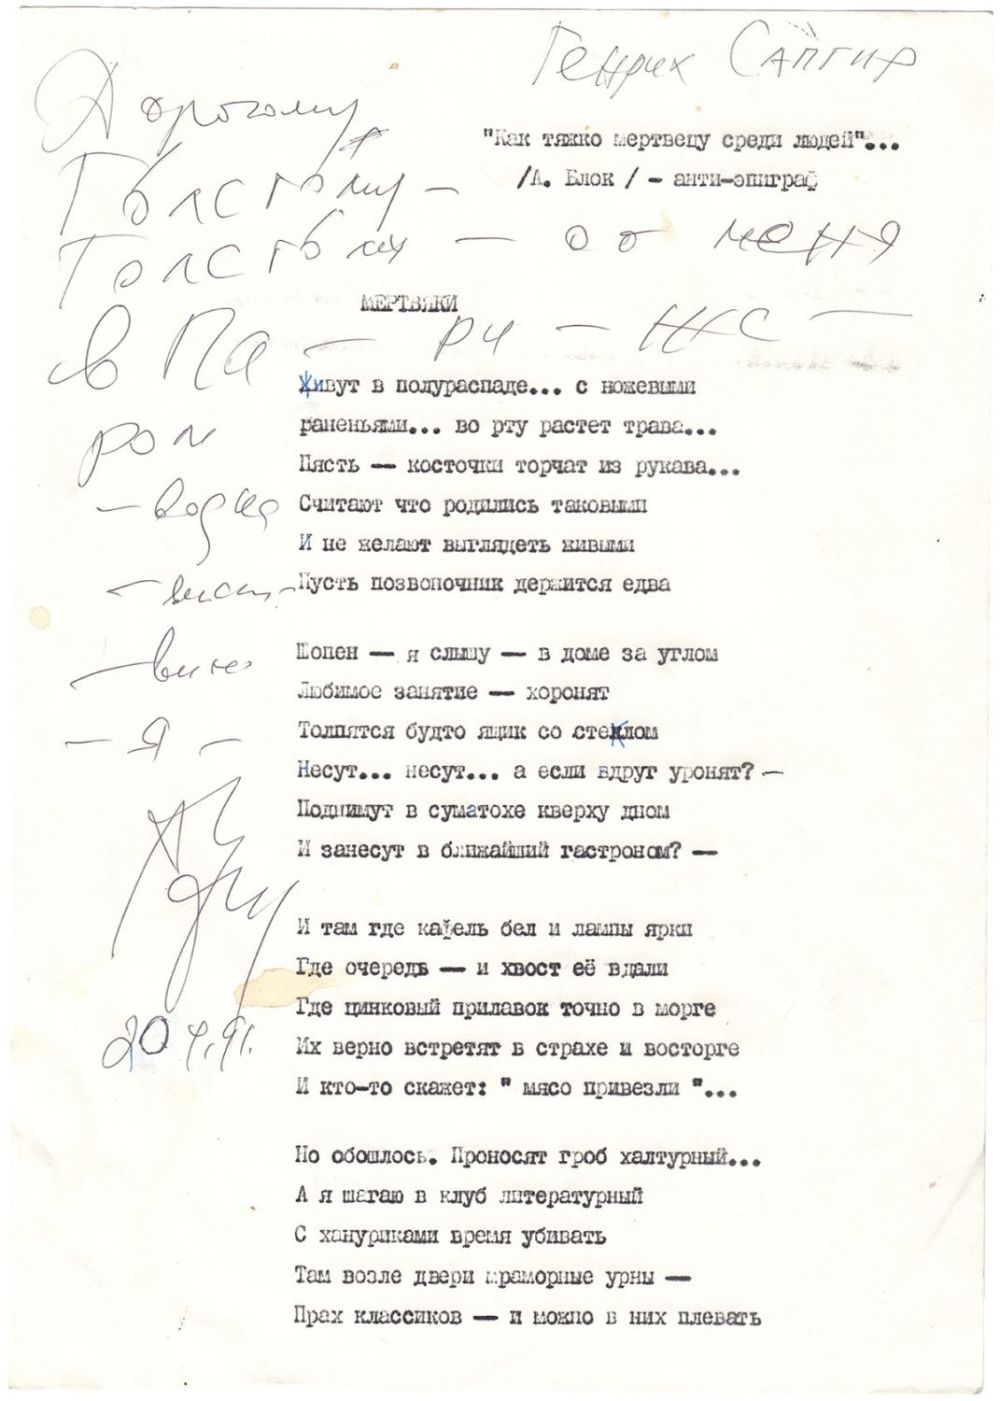 Генрих Сапгир
Дорогому
Толстому —
Толстым — от меня
в Па — ри — же —
"Как тяжко мертвецу среди людей"...
/А. Блок / – анти-эпиграф
МЕРТВЯКИ
Живут в полураспаде... с ножевыми
раненьями... во рту растет трава...
Пясть — косточки торчат из рукава...
Считают что родились таковыми
И не желают выглядеть живыми
Пусть позвопочник держится едва
Шопен — я слышу — в доме за углом
Любимое занятие — хоронят
Толпятся будто ящик со стеклом
Несут... несут... а если вдруг уронят? —
Поднимут в суматохе кверху дном
И занесут в ближайший гастроном? —
И там где кафель бел и лампы ярки
Где очередь — и хвост её вдали
Где цинковый прилавок точно в морге
Их верно встретят в страхе и восторге
И кто-то скажет: " мясо привезли "...
Но обошлось. Проносят гроб халтурный...
А я шагаю в клуб литературный
С хануриками время убивать
Там возле двери мраморные урны —
Прах классиков — и можно в них плевать
ром
– водка
– виски –
– вино
– я –
20 4.91.